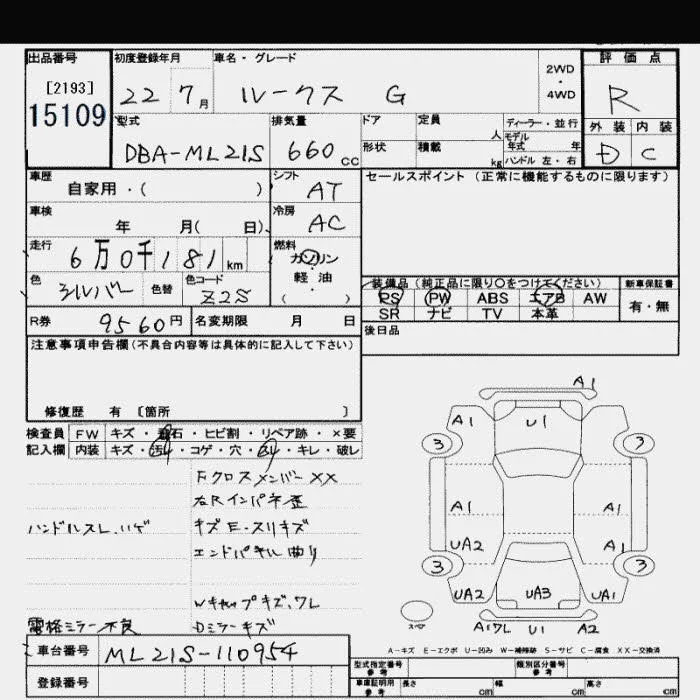 出品番号
[2193]
15109
初度登録年月
22 7月
車名・グレード
ルークス G
2WD
・
4WD
評価点
R
外装 内装
D C
型式
DBA-ML21S
排気量
660cc
ドア
定員
人
ディーラー・並行
モデル
年式 年
形状
積載
kg
ハンドル 左・右
車歴
自家用・( )
シフト
AT
セールスポイント (正常に機能するものに限ります)
車検
年 月( 日)
冷房
AC
走行
6万0千181km
燃料
ガソリン
軽・油
( )
色
シルバー
色替
色コード
Z2S
装備品 (純正品に限り○をつけてください)
新車保証書
PS PW ABS エアB AW
SR ナビ TV 本革
有・無
R券
9560円
名変期限 月 日
後日品
注意事項申告欄(不具合内容等は具体的に記入して下さい)
修復歴 有 [箇所 ]
検査員
記入欄
FW キズ・飛石・ヒビ割・リペア跡・×要
内装 キズ・汚れ・コゲ・穴・スリ・キレ・破レ
Fクロスメンバーxx
右Rインパネ歪
ハンドルスレ.ハゲ
キズE・スリキズ
エンドパネル曲り
Wキャップキズ.ワレ
電格ミラー不良
Dミラーキズ
車台番号
ML21S-110954
登録番号
A1
A1
U1
3
3
A1
A1
UA2
A1
3
3
UA2
UA3
UA1
スペア
A1ワレ
U1
A2
A-キズ E-エクボ U-凹み W-補修跡 S-サビ C-腐食 XX-交換済
型式指定番号
参考
類別区分番号
参考
車庫証明用
参考
長さ cm
幅 cm
高さ cm